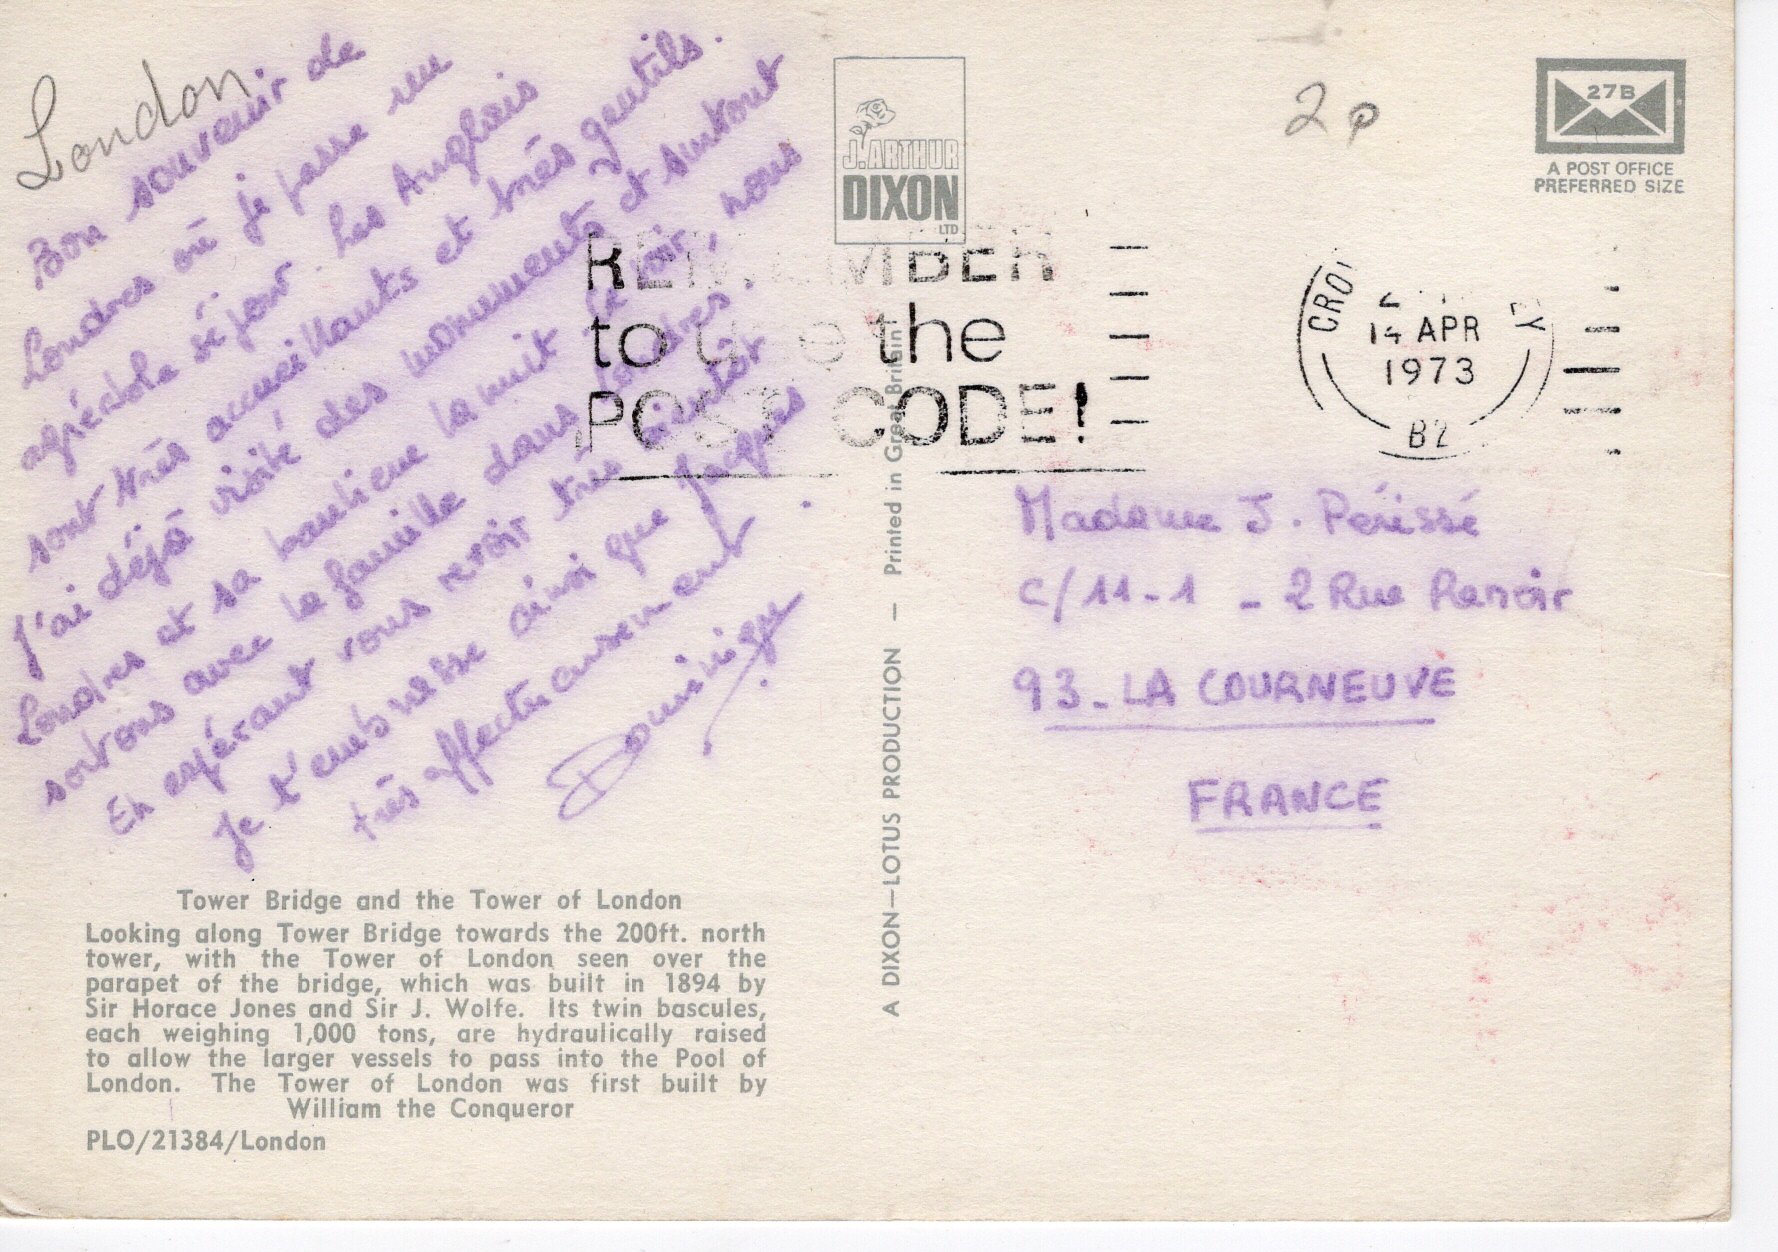 London
Bon souvenir de
Londres où je passe un
agréable séjour. Les Anglais
sont très accueillants et très gentils.
J'ai déjà visité des monuments et surtout
Londres et sa banlieue la nuit le soir, nous
sortons avec la famille dans Londres.
En espérant vous revoir très bientôt
je t'embrasse ainsi que Jacques
très affectueusement.
Dominique
Tower Bridge and the Tower of London
Looking along Tower Bridge towards the 200ft. north
tower, with the Tower of London seen over the
parapet of the bridge, which was built in 1894 by
Sir Horace Jones and Sir J. Wolfe. Its twin bascules,
each weighing 1,000 tons, are hydraulically raised
to allow the larger vessels to pass into the Pool of
London. The Tower of London was first built by
William the Conqueror
PLO/21384/London
J. ARTHUR
DIXON
LTD
A DIXON—LOTUS PRODUCTION — Printed in Great Britain
REMEMBER
to use the
POST CODE!
2p
27B
A POST OFFICE
PREFERRED SIZE
14 APR
1973
Madame J. Périssé
c/11-1 - 2 Rue Renoir
93_LA COURNEUVE
FRANCE